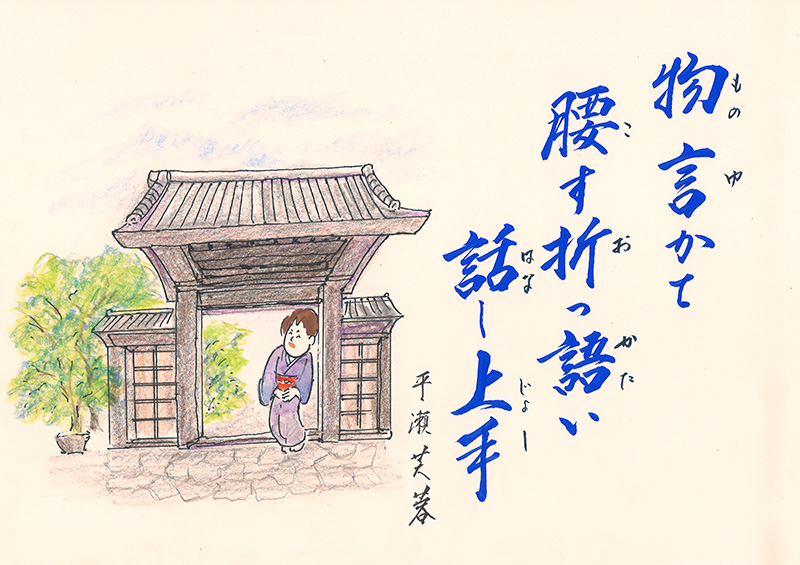 もの ゆ
物言かて
こ お かた
腰す折っ語い
はな じょー
話し上手
平瀬芙蓉